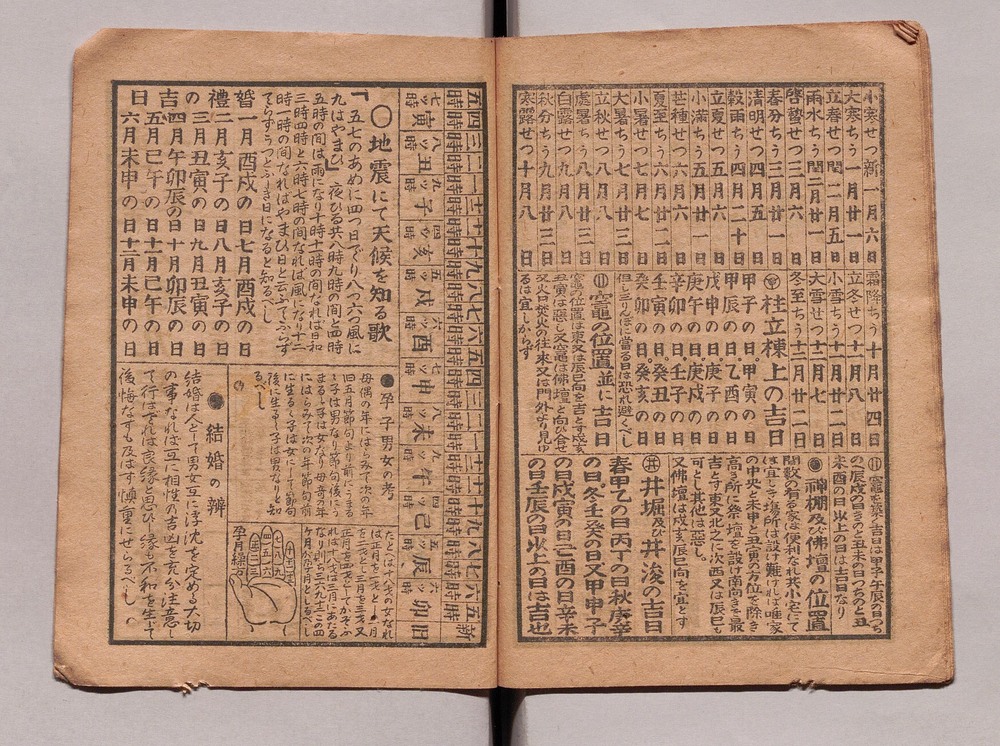 小寒せつ新一月六日
大寒ちう一月廿一日
立春せつ閏二月五日
雨水ちう閏二月廿一日
啓蟄せつ三月六日
春分ちう三月廿一日
清明せつ四月五日
穀雨ちう四月二十日
立夏せつ五月六日
小満ちう五月廿一日
芒種せつ六月六日
夏至ちう六月廿二日
小暑せつ七月七日
大暑ちう七月廿三日
立秋せつ八月八日
處暑ちう八月廿三日
白露せつ九月八日
秋分ちう九月廿三日
寒露せつ十月八日
霜降ちう十月廿四日
立冬せつ十一月八日
小雪ちう十一月廿二日
大雪せつ十二月七日
冬至ちう十二月廿二日
柱立棟上の吉日
甲子の日甲寅の日
甲辰の日。乙酉の日
戊申の日。庚子の日
庚午の日。庚戌の日
辛卯の日。壬子の日
壬寅の日。癸丑の日
癸卯の日。癸亥の日
但し三りんぼに當る日は恐れ避くべし
竈の位置並に吉日
竈の位置は東又は辰巳向を吉とす戌亥
丑寅は惡し又竈は佛壇と向ひ合せ
又火口焚火の往來又は門外より見ゆ
るは宜しからず
竈を築く吉日は甲子午辰の日つち
の人辰戌の日きのと丑未の日つちのと丑
未酉の日以上の日は吉日なり
神棚及び佛壇の位置
間数の有る家は便利なれ共小宅にて
は宜しき場所は設け難ければ唯家
の中央と未申と丑寅の方位を除き
高き所に祭壇を設け南向きを最
吉とす東又北之に次西又は辰巳も
可とし其他は惡し。
又佛壇は戌亥辰巳向を宜とす
井堀及び井浚の吉日
春甲乙の日丙丁の日秋庚辛
の日冬壬癸の日又甲申子
の日戊寅の日己酉の日辛未
の日壬辰の日以上の日は吉也
五四三二一十二十一十九八七六五四三二一十二十一十九八七六五新
時時時時時時時時時時時時時時時時時時時時時時時時時
七ツ寅時
八ツ丑時
九ツ子時
四ツ亥時
五ツ戌時
六ツ酉時
七ツ申時
八ツ未時
九ツ午時
四ツ巳時
五ツ辰時
六ツ卯時
旧
〇地震にて天候を知る歌
「五七のあめに四つ日でり八つ六つ風に
九はやまひ」夜ひる共八時九時の間と四時
五時の間は雨になり十時十時の間なれば日和
三時四時と六時七時の間なれば風になり十二
時一時の間なればやまひ日と云ふてふらず
てらずうつとふき日になると知るべし
婚一月酉戌の日七月酉戌の日
禮二月亥子の日八月亥子の日
の三月丑寅の日九月丑寅の日
吉四月午卯辰の日十月卯辰の日
五月巳午の日十一月巳午の日
日六月未申の日十二月未申の日
●孕子男女の考
母偶の年にはらみて次の年
旧五月節句より前にうまる
〻子は男なり節句後にう
まる〻子は女なり母奇の年
にはらみて次の年節句前
に生る〻子は女にして節句
後に生る〻子は男なりと知
るべし
たとへば八ツの女なれ
ば正月七ツとし二月
を二ツと三月を三ツ又
正月四ツとしてかぞふ
れば十六は三月にあたる
孕月繰方
●結婚の辨
結婚は人として男女互に浮沈を定める大切
の事なれば互に相性の吉凶を充分注意し
て行はざれば良縁と思ひし縁も不和を生じて
後悔なすも及はず慎重にせらるべし。